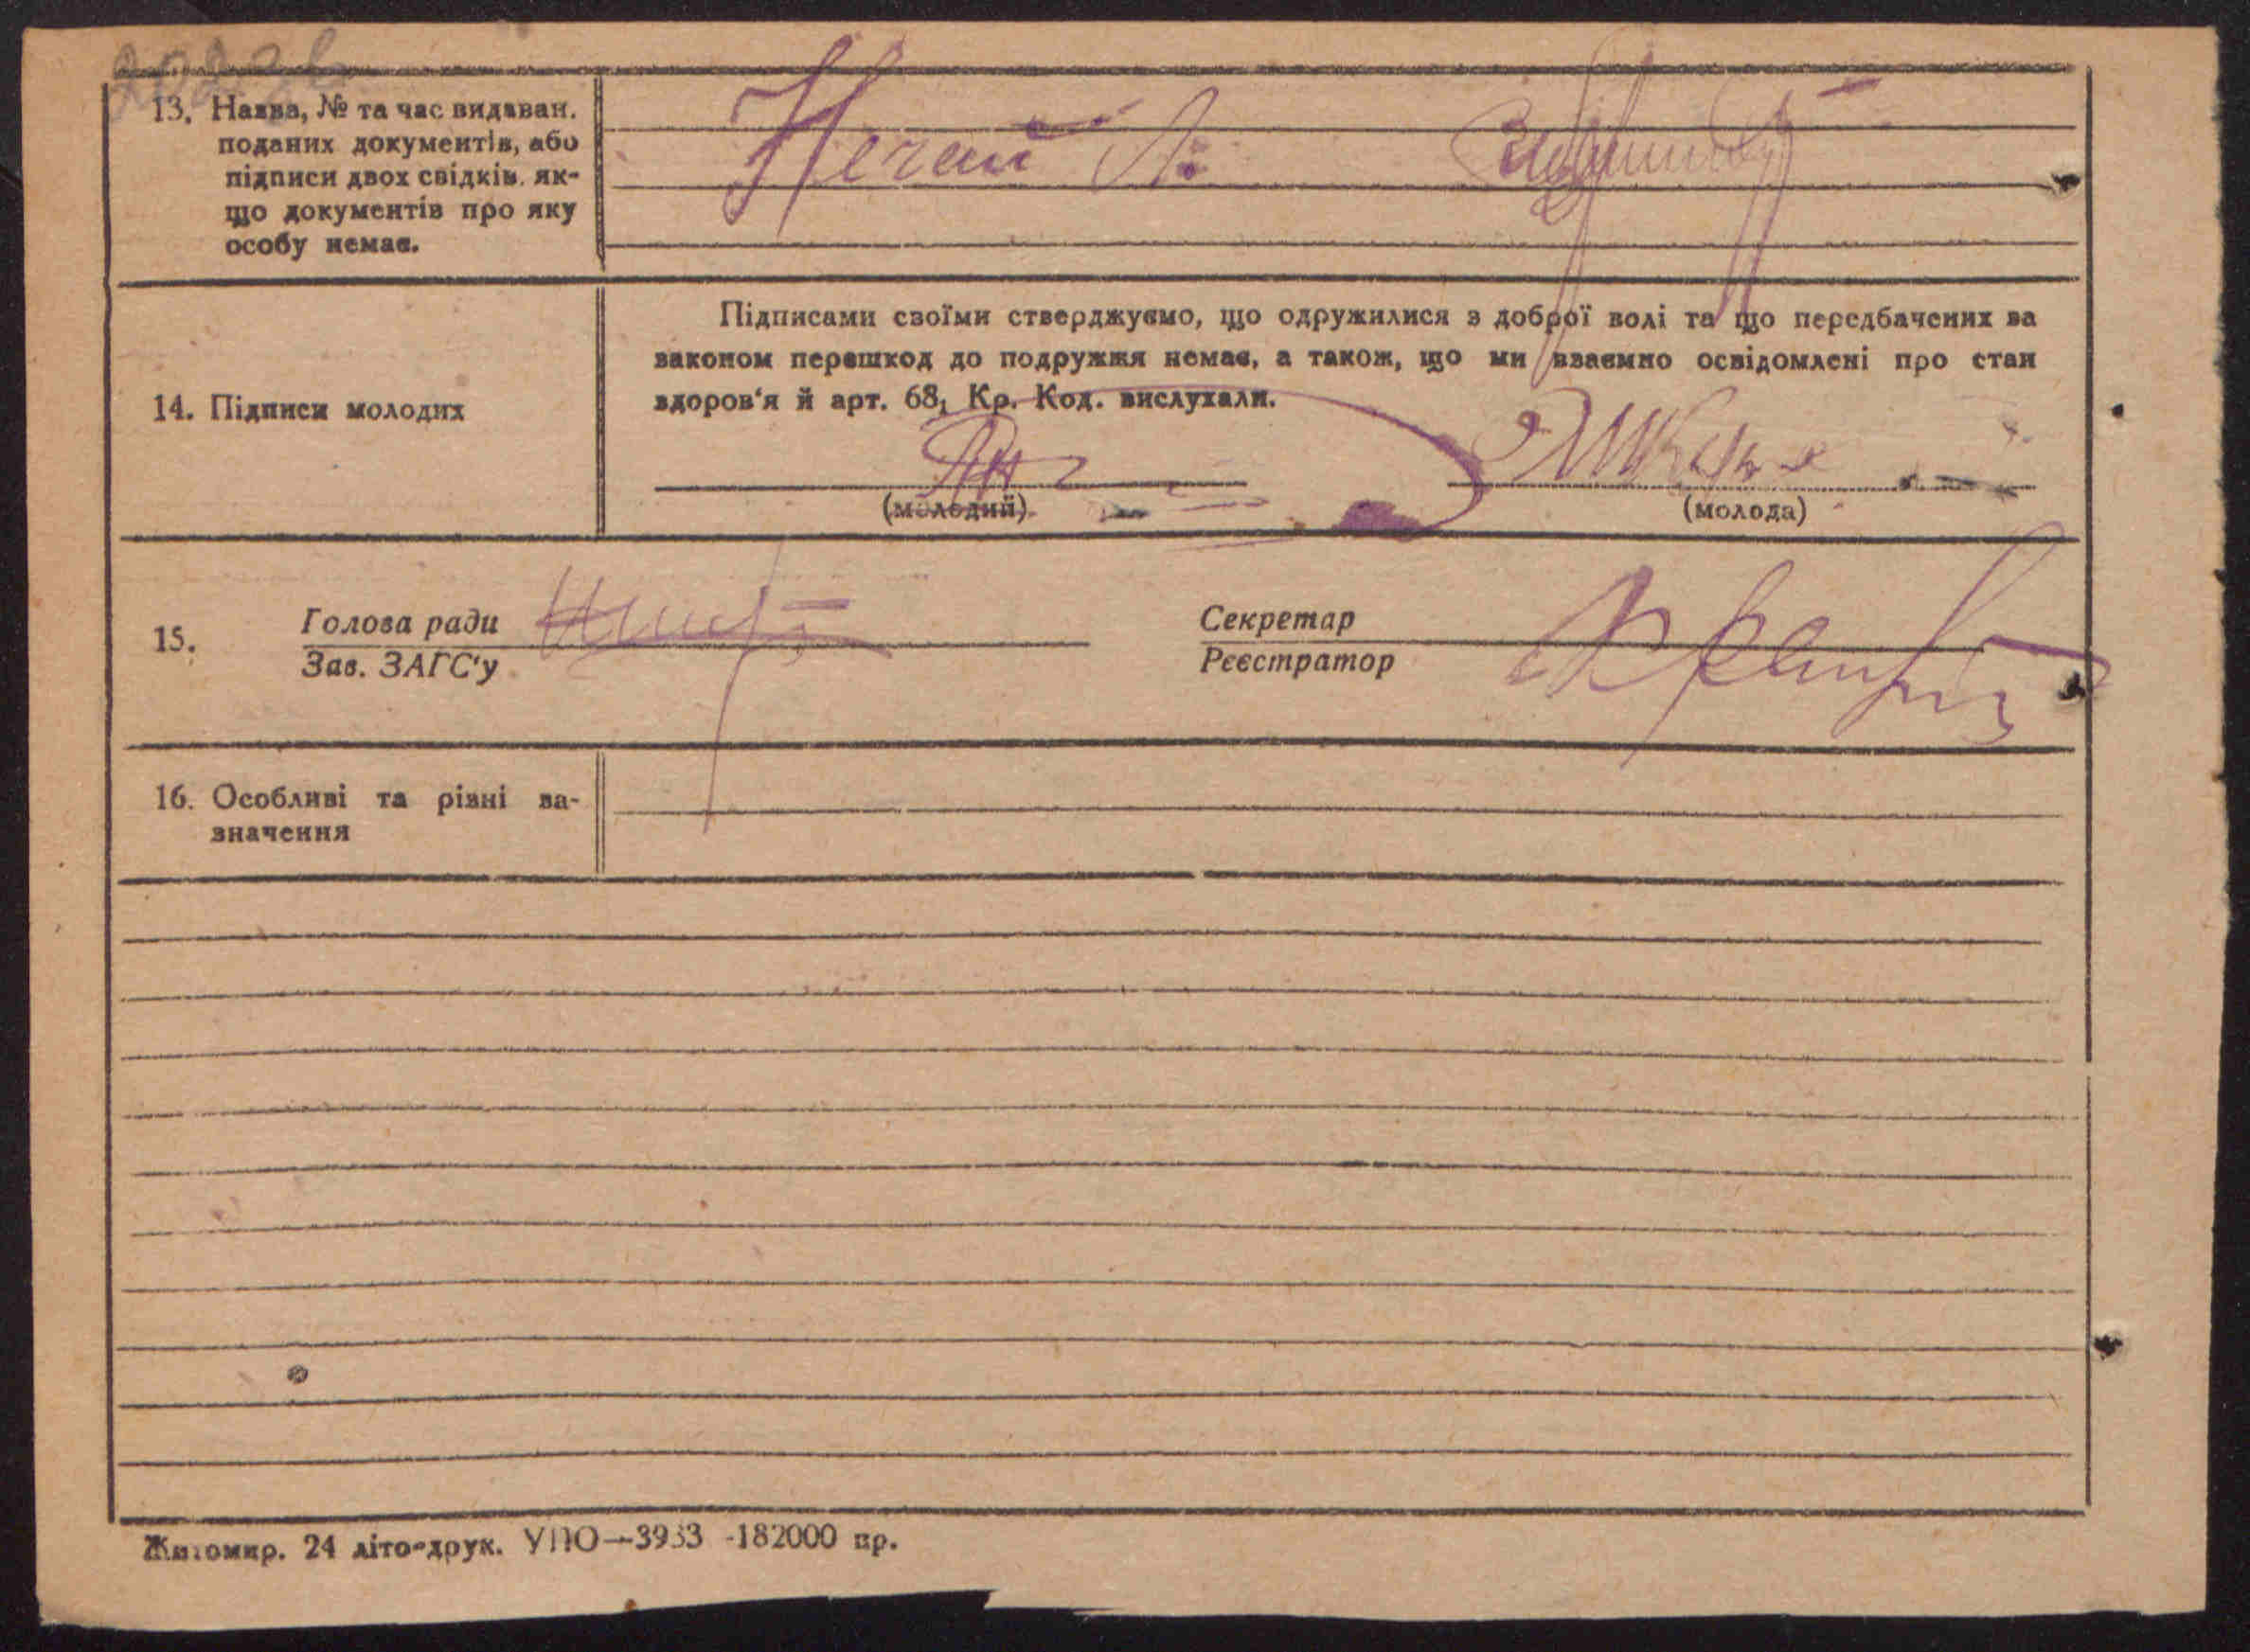 13. Назва, № та час видаван.
поданих документів, або
підписи двох свідків, як-
що документів про яку
особу немає.
Нечай Л.
Підписами своїми стверджуємо, що одружилися з доброї волі та що передбачених за
законом перешкод до подружжя немає, а також, що ми взаємно освідомлені про стан
здоров'я й арт. 68, Кр. Код. вислухали.
14. Підписи молодих
(молодий)
(молода)
15.
Голова ради
Зав. ЗАГС'у
Секретар
Реєстратор
16. Особливі та різні за-
значення
Житомир. 24 літо-друк. УПО—3933 -182000 пр.